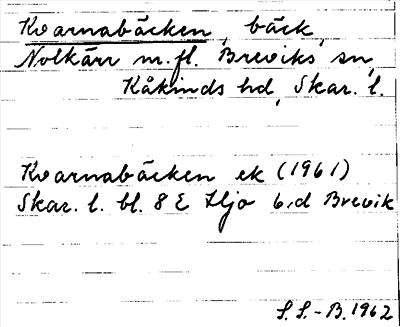 Kvarnabäcken, bäck,
Nolkärr m.fl. Breviks sn,
Kåkinds hd, Skar. l.
Kvarnabäcken ek (1961)
Skar. l. bl. 8 E Hjo 6.d Brevik
S. S.-B. 1962